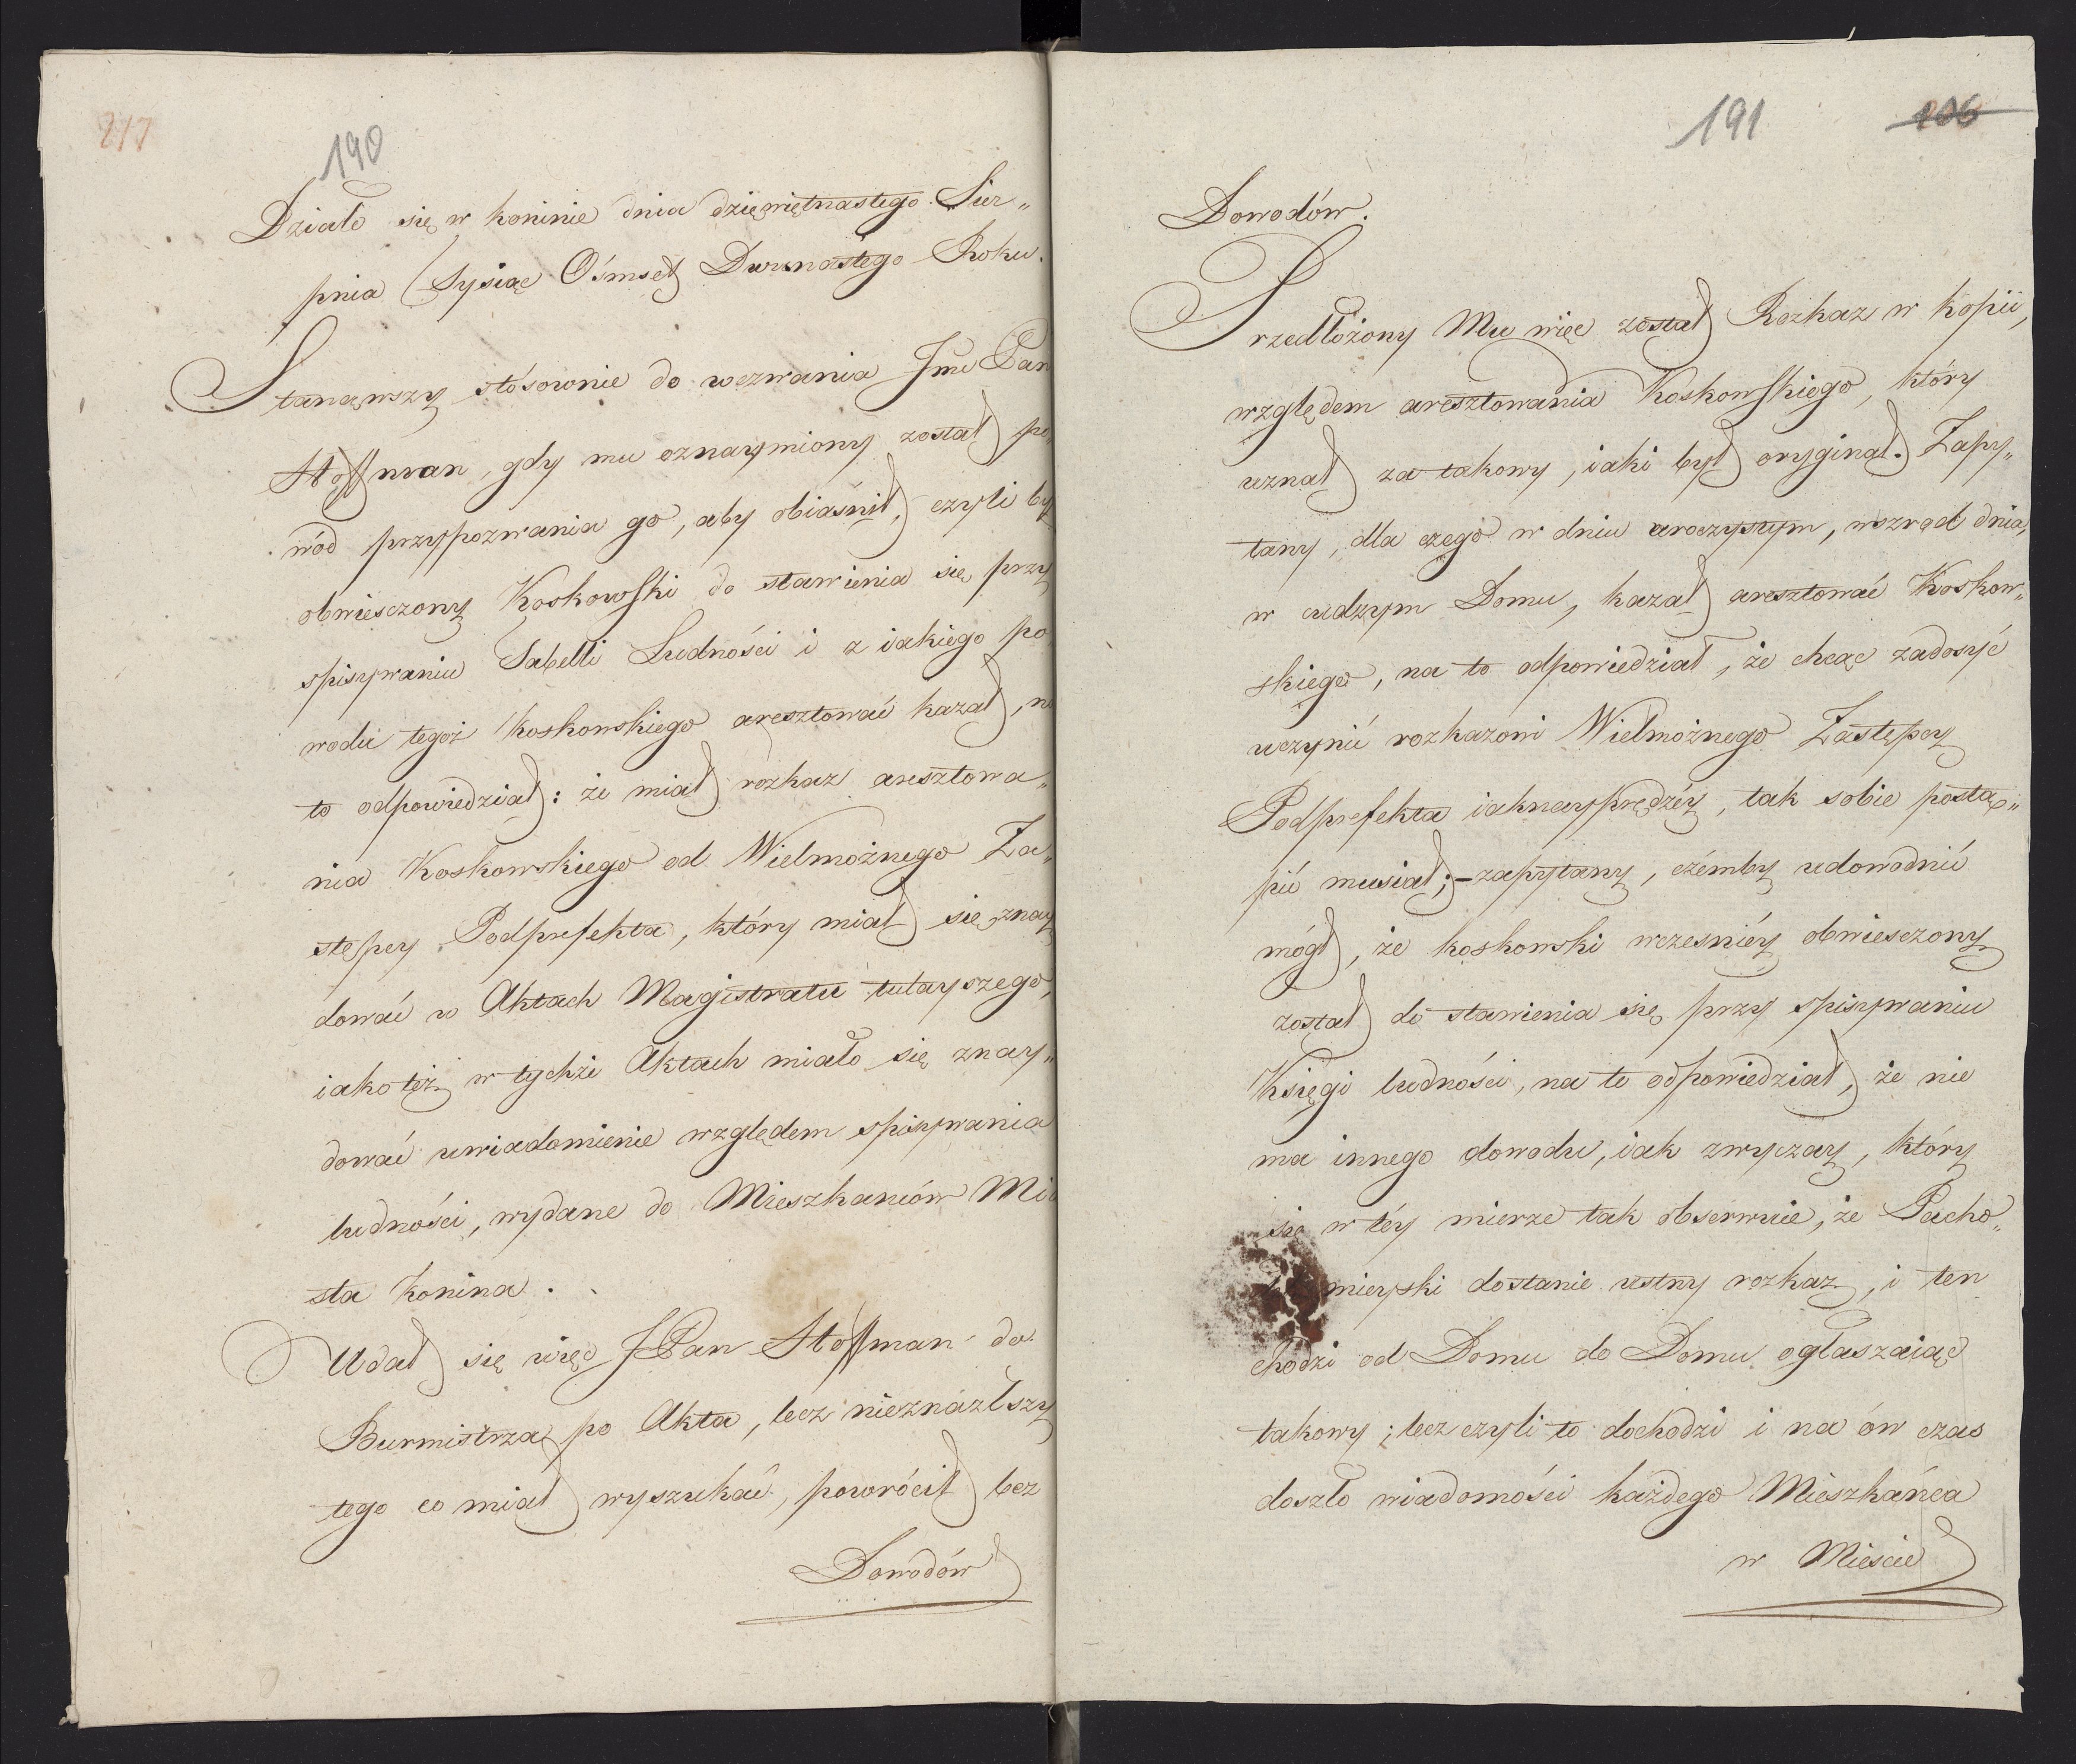 217
190
Działo się w koninie dnia dziewiętnastego Sier„
pnia Tysiąc Ośmset Dwunastego Roku.
Stanąwszy stósownie do wezwania Jmć Pan
Hoffman, gdy mu oznaymiony został po„
wód przypozwania go, aby obiaśnił, czyli był
obwiesczony Koskowski do stawienia się przy
spisywaniu Tabelli Ludności i z iakiego po
wodu tegoż Koskowskiego aresztować kazał, na
to odpowiedział: że miał rozkaz aresztowa„
nia Koskowskiego od Wielmożnego Za„
stępcy Podprefekta, który miał się znay
dować w Aktach Magistratu tutayszego,
iako też w tychże Aktach miało się znay„
dować uwiadomienie względem spisywania
ludności, wydane do Mieszkańców Mia
sta Konina.
Udał się więc JPan Hoffman do
Burmistrza po Akta, lecz nieznazłszy
tego co miał wyszukać, powrócił bez
Dowodów
191
206
Dowodów.
Przedłożony Mu więc został Rozkaz w kopii,
względem aresztowania Koskowskiego, który
uznał za takowy, iaki był oryginał. Zapy„
tany, dla czego w dniu uroczystym, wszród dnia,
w cudzym Domu, kazał aresztować Koskow„
skiego, na to odpowiedział, że chcąc zadosyć
uczynić rozkazowi Wielmożnego Zastępcy
Podprefekta iaknayprędzéy, tak sobie postą„
pić musiał; – zapytany, czémby udowodnić
mógł, że koskowski wcześniéy obwiesczony
został do stawienia się przy spisywaniu
Księgi ludności, na to odpowiedział, że nie
ma innego dowodu, iak zwyczay, który
się w téy mierze tak obserwuie, że Pacho„
mieyski dostanie ustny rozkaz, i ten
chodzi od Domu do Domu ogłaszaiąc
takowy; lecz czyli to dochodzi i na ów czas
doszło wiadomości każdego Mieszkańca
w Mieście